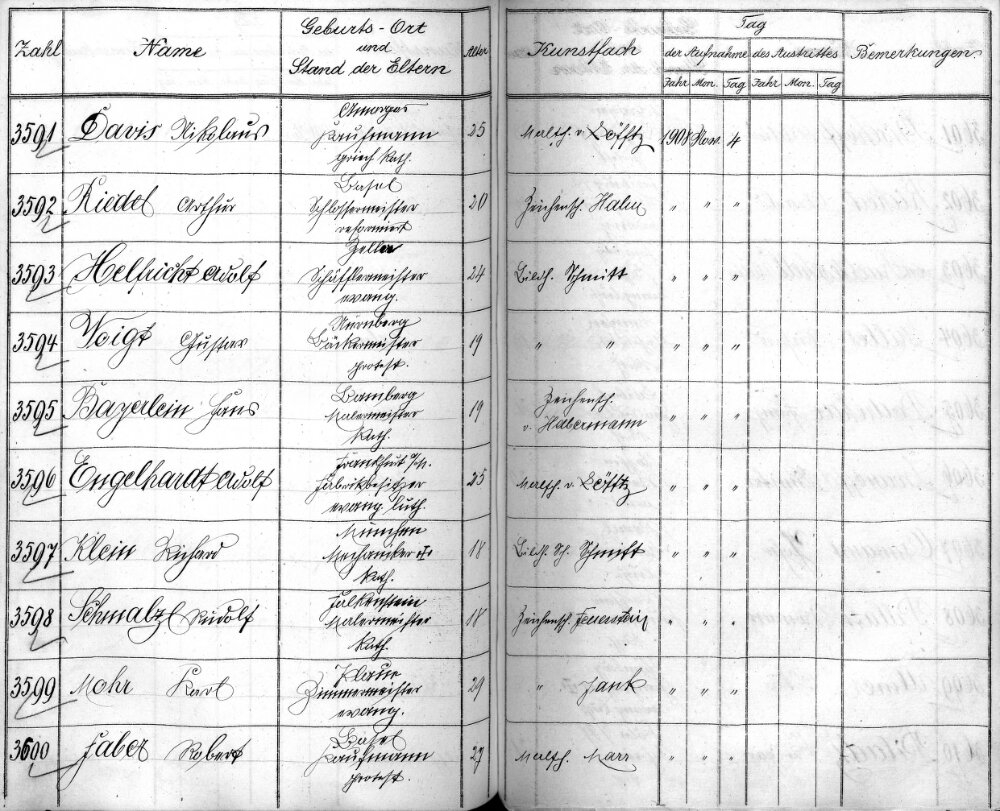 Zahl Name Geburts-Ort und Stand der Eltern Alter Kunstfach Tag der Aufnahme des Austrittes Bemerkungen.
Jahr Mon. Tag Jahr Mon. Tag
3591 Davis Nikolaus Amorgos 25 Malsch. v. Löfftz 1908 Nov. 4
Kaufmann
griech. kath.
3592 Riedel Arthur Basel 20 Zeichensch. Halm " " "
Schlossermeister
reformiert
3593 Helfricht Adolf Zella 24 Bildh. Schmitt " " "
Schäfflermeister
evang.
3594 Voigt Gustav Nürnberg 19 " " " " "
Bäckermeister
protest.
3595 Bayerlein Hans Bamberg 19 Zeichensch. v. Habermann " " "
Malermeister
kath.
3596 Engelhardt Adolf Frankfurt a/M. 25 Malsch. v. Löfftz " " "
Fabrikbesitzer
evang. luth.
3597 Klein Richard München 18 Bildh. Sch. Schmitt " " "
Mechaniker
kath.
3598 Schmalzl Rudolf Falkenstein 18 Zeichensch. Feuerstein " " "
Malermeister
kath.
3599 Mohr Karl 29 " Jank " " "
Zimmermeister
evang.
3600 Faber Robert Basel 27 Malsch. Marr " " "
Kaufmann
protest.